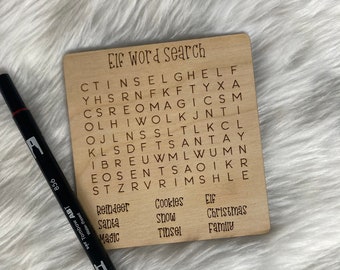 Elf Word Search
C T I N S E L G H E L F
Y H S R N F K F T Y X A
C S R E O M A G I C S M
O L H I W O L K J N T I
O J L N S S L T L K C L
K L S D F T S A N T A Y
I B R E U W M L W U M N
E O S E N T S A O I K R
S T Z R V R I M S H L E
Reindeer Cookies Elf
Santa Snow Christmas
Magic Tinsel Family
ABT